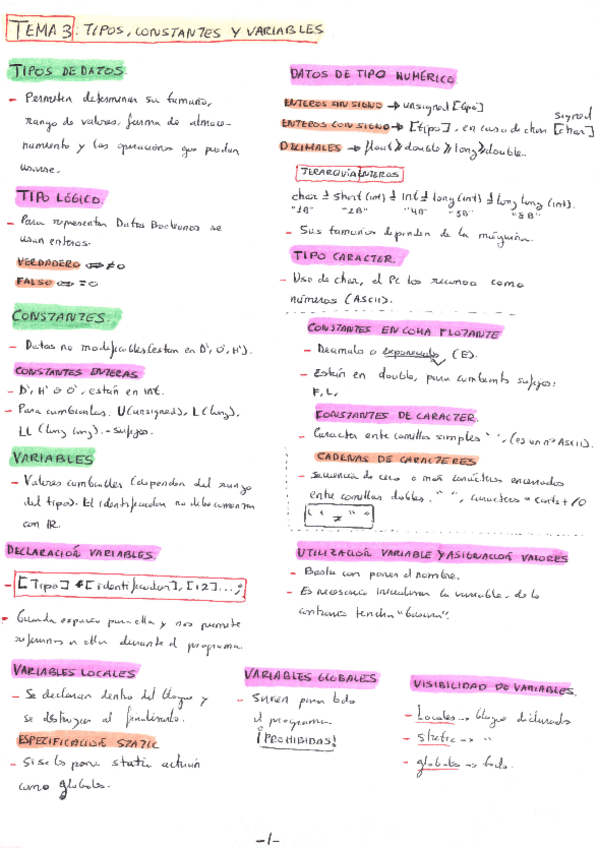 TEMA 3: TIPOS, CONSTANTES Y VARIABLES
TIPOS DE DATOS
- Permiten determinar su tamaño,
rango de valores, forma de almace-
namiento y las operaciones que puedan
usarse.
TIPO LÓGICO
- Para representar Datos Booleanos se
usan enteros.
VERDADERO ⇔ ≠0
FALSO ⇔ =0
DATOS DE TIPO NUMÉRICO
ENTEROS SIN SIGNO → unsigned [tipo]
ENTEROS CON SIGNO → [tipo], en caso de char signed [char]
DECIMALES → float ≫ double ≫ long ≫ double.
JERARQUÍA ENTEROS
char ≤ short (int) ≤ int ≤ long (int) ≤ long long (int).
"1B" "2B" "4B" "8B" "8B"
- Sus tamaños dependen de la máquina.
TIPO CARACTER.
- Uso de char, el PC los reconoce como
números (ASCII).
CONSTANTES.
- Datos no modificables (están en D', O', H').
CONSTANTES ENTERAS
- D', H' o O', están en int.
- Para cambiarlas. U (unsigned), L (long),
LL (long long). - sufijos.
CONSTANTES EN COMA FLOTANTE
- Decimal o exponencial (E).
- Están en double, para cambiarlo sufijos:
F, L,
CONSTANTES DE CARACTER.
- Caracter entre comillas simples ' ', (es un nº ASCII).
CADENAS DE CARACTERES
- Secuencia de cero o más carácteres encerrados
entre comillas dobles. " ",
' ' ≠ " "
VARIABLES
- Valores cambiables (dependen del rango
del tipo). El identificador no debe comenzar
con
DECLARACIÓN VARIABLES.
- [Tipo] [identificador], [i2]...;
- Guarda espacio para ella y nos permite
referirnos a ella durante el programa.
UTILIZACIÓN VARIABLE Y ASIGNACIÓN VALORES
- Basta con poner el nombre.
- Es necesario inicializar la variable, de lo
contrario tendrá "basura".
VARIABLES LOCALES
- Se declaran dentro del bloque y
se destruyen al finalizarlo.
ESPECIFICACIÓN STATIC
- Si se lo pone static actúan
como globales.
VARIABLES GLOBALES
- Sirven para todo
el programa.
¡PROHIBIDAS!
VISIBILIDAD DE VARIABLES.
- Locales → bloque declarado
- Static → "
- globales → todo.
-1-